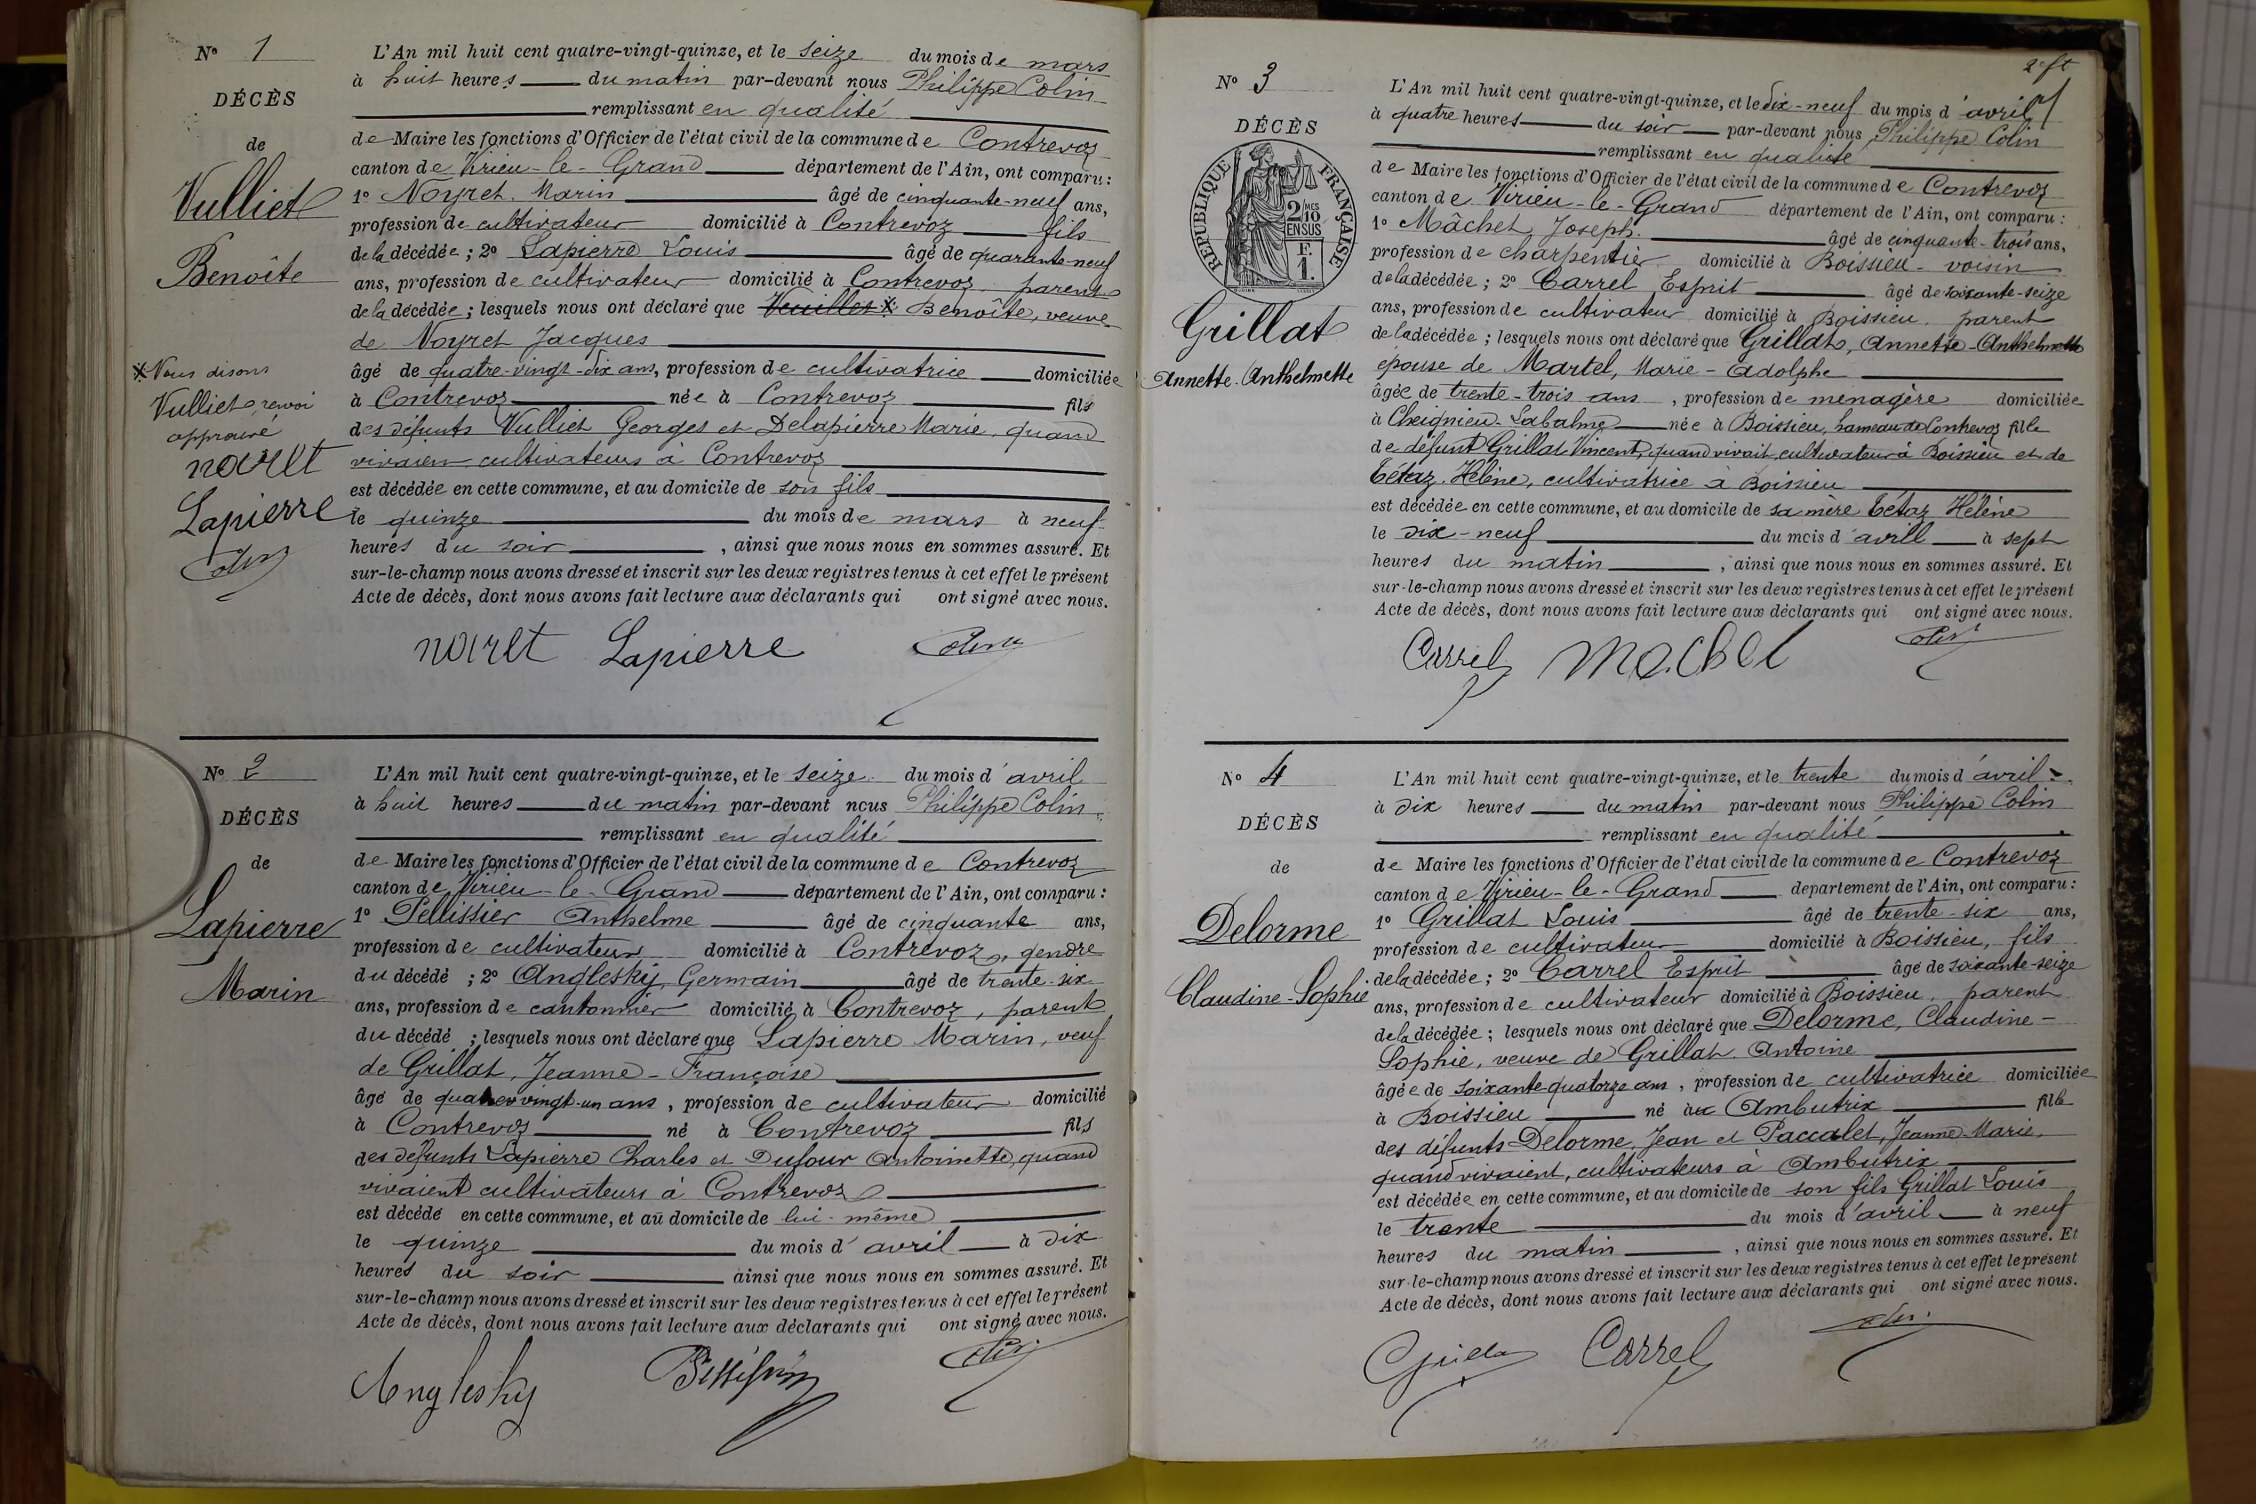 N° 1
DÉCÈS
de
Vulliet
Benoîte
* Nous disons
Vulliet, renvoi
approuvé
noiret
Lapierre
Colin
L'An mil huit cent quatre-vingt-quinze, et le seize du mois de mars
à huit heures du matin par-devant nous Philippe Colin
remplissant en qualité
de Maire les fonctions d'Officier de l'état civil de la commune de Contrevoz
canton de Virieu-le-Grand département de l'Ain, ont comparu:
1° Noyret Marin âgé de cinquante-neuf ans,
profession de cultivateur domicilié à Contrevoz fils
de la décédée; 2° Lapierre Louis âgé de quarante-neuf
ans, profession de cultivateur domicilié à Contrevoz parent
de la décédée; lesquels nous ont déclaré que * Benoîte, veuve
de Noyret Jacques
âgé de quatre-vingt-dix ans, profession de cultivatrice domiciliée
à Contrevoz née à Contrevoz fils
des défunts Vulliet Georges et Delapierre Marie, quand
vivaient cultivateurs à Contrevoz
est décédée en cette commune, et au domicile de son fils
le quinze du mois de mars à neuf
heures du soir, ainsi que nous nous en sommes assuré. Et
sur-le-champ nous avons dressé et inscrit sur les deux registres tenus à cet effet le présent
Acte de décès, dont nous avons fait lecture aux déclarants qui ont signé avec nous.
noiret Lapierre Colin
N° 2
DÉCÈS
de
Lapierre
Marin
L'An mil huit cent quatre-vingt-quinze, et le seize du mois d'avril
à huit heures du matin par-devant nous Philippe Colin
remplissant en qualité
de Maire les fonctions d'Officier de l'état civil de la commune de Contrevoz
canton de Virieu-le-Grand département de l'Ain, ont comparu:
1° Pellissier Anthelme âgé de cinquante ans,
profession de cultivateur domicilié à Contrevoz, gendre
du décédé; 2° Anglesky, Germain âgé de trente-six
ans, profession de cantonnier domicilié à Contrevoz, parent
du décédé; lesquels nous ont déclaré que Lapierre Marin, veuf
de Grillat, Jeanne-Françoise
âgé de quatre-vingt-un ans, profession de cultivateur domicilié
à Contrevoz né à Contrevoz fils
des défunts Lapierre Charles et Dufour Antoinette, quand
vivaient cultivateurs à Contrevoz
est décédé en cette commune, et au domicile de lui-même
le quinze du mois d'avril à dix
heures du soir ainsi que nous nous en sommes assuré. Et
sur-le-champ nous avons dressé et inscrit sur les deux registres tenus à cet effet le présent
Acte de décès, dont nous avons fait lecture aux déclarants qui ont signé avec nous.
Anglesky Colin
2e ft
N° 3
DÉCÈS
RÉPUBLIQUE FRANÇAISE
2/10 MES
EN SUS
F.
1.
Grillat
Annette-Anthelmette
L'An mil huit cent quatre-vingt-quinze, et le dix-neuf du mois d'avril
à quatre heures du soir par-devant nous Philippe Colin
remplissant en qualité
de Maire les fonctions d'Officier de l'état civil de la commune de Contrevoz
canton de Virieu-le-Grand département de l'Ain, ont comparu:
1° Mâchet Joseph. âgé de cinquante-trois ans,
profession de charpentier domicilié à Boissieu voisin
de la décédée; 2° Carrel Esprit âgé de soixante-seize
ans, profession de cultivateur domicilié à Boissieu parent
de la décédée; lesquels nous ont déclaré que Grillat, Annette-Anthelmette
épouse de Martel, Marie-Adolphe
âgée de trente-trois ans, profession de ménagère domiciliée
à Cheignieu-Labalme née à Boissieu, hameau de Contrevoz fille
de défunt Grillat Vincent, quand vivait, cultivateur à Boissieu et de
Tétaz Hélène, cultivatrice à Boissieu
est décédée en cette commune, et au domicile de sa mère Tétaz Hélène
le dix-neuf du mois d'avril à sept
heures du matin, ainsi que nous nous en sommes assuré. Et
sur-le-champ nous avons dressé et inscrit sur les deux registres tenus à cet effet le présent
Acte de décès, dont nous avons fait lecture aux déclarants qui ont signé avec nous.
Carrel Machet Colin
N° 4
DÉCÈS
de
Delorme
Claudine-Sophie
L'An mil huit cent quatre-vingt-quinze, et le trente du mois d'avril
à dix heures du matin par-devant nous Philippe Colin
remplissant en qualité
de Maire les fonctions d'Officier de l'état civil de la commune de Contrevoz
canton de Virieu-le-Grand département de l'Ain, ont comparu:
1° Grillat Louis âgé de trente-six ans,
profession de cultivateur domicilié à Boissieu, fils
de la décédée; 2° Carrel Esprit âgé de soixante-seize
ans, profession de cultivateur domicilié à Boissieu, parent
de la décédée; lesquels nous ont déclaré que Delorme, Claudine-
Sophie, veuve de Grillat Antoine
âgée de soixante-quatorze ans, profession de cultivatrice domiciliée
à Boissieu né à Ambutrix fille
des défunts Delorme, Jean et Paccalet, Jeanne-Marie,
quand vivaient, cultivateurs à Ambutrix
est décédée en cette commune, et au domicile de son fils Grillat Louis
le trente du mois d'avril à neuf
heures du matin, ainsi que nous nous en sommes assuré. Et
sur-le-champ nous avons dressé et inscrit sur les deux registres tenus à cet effet le présent
Acte de décès, dont nous avons fait lecture aux déclarants qui ont signé avec nous.
Grilla Carrel Colin